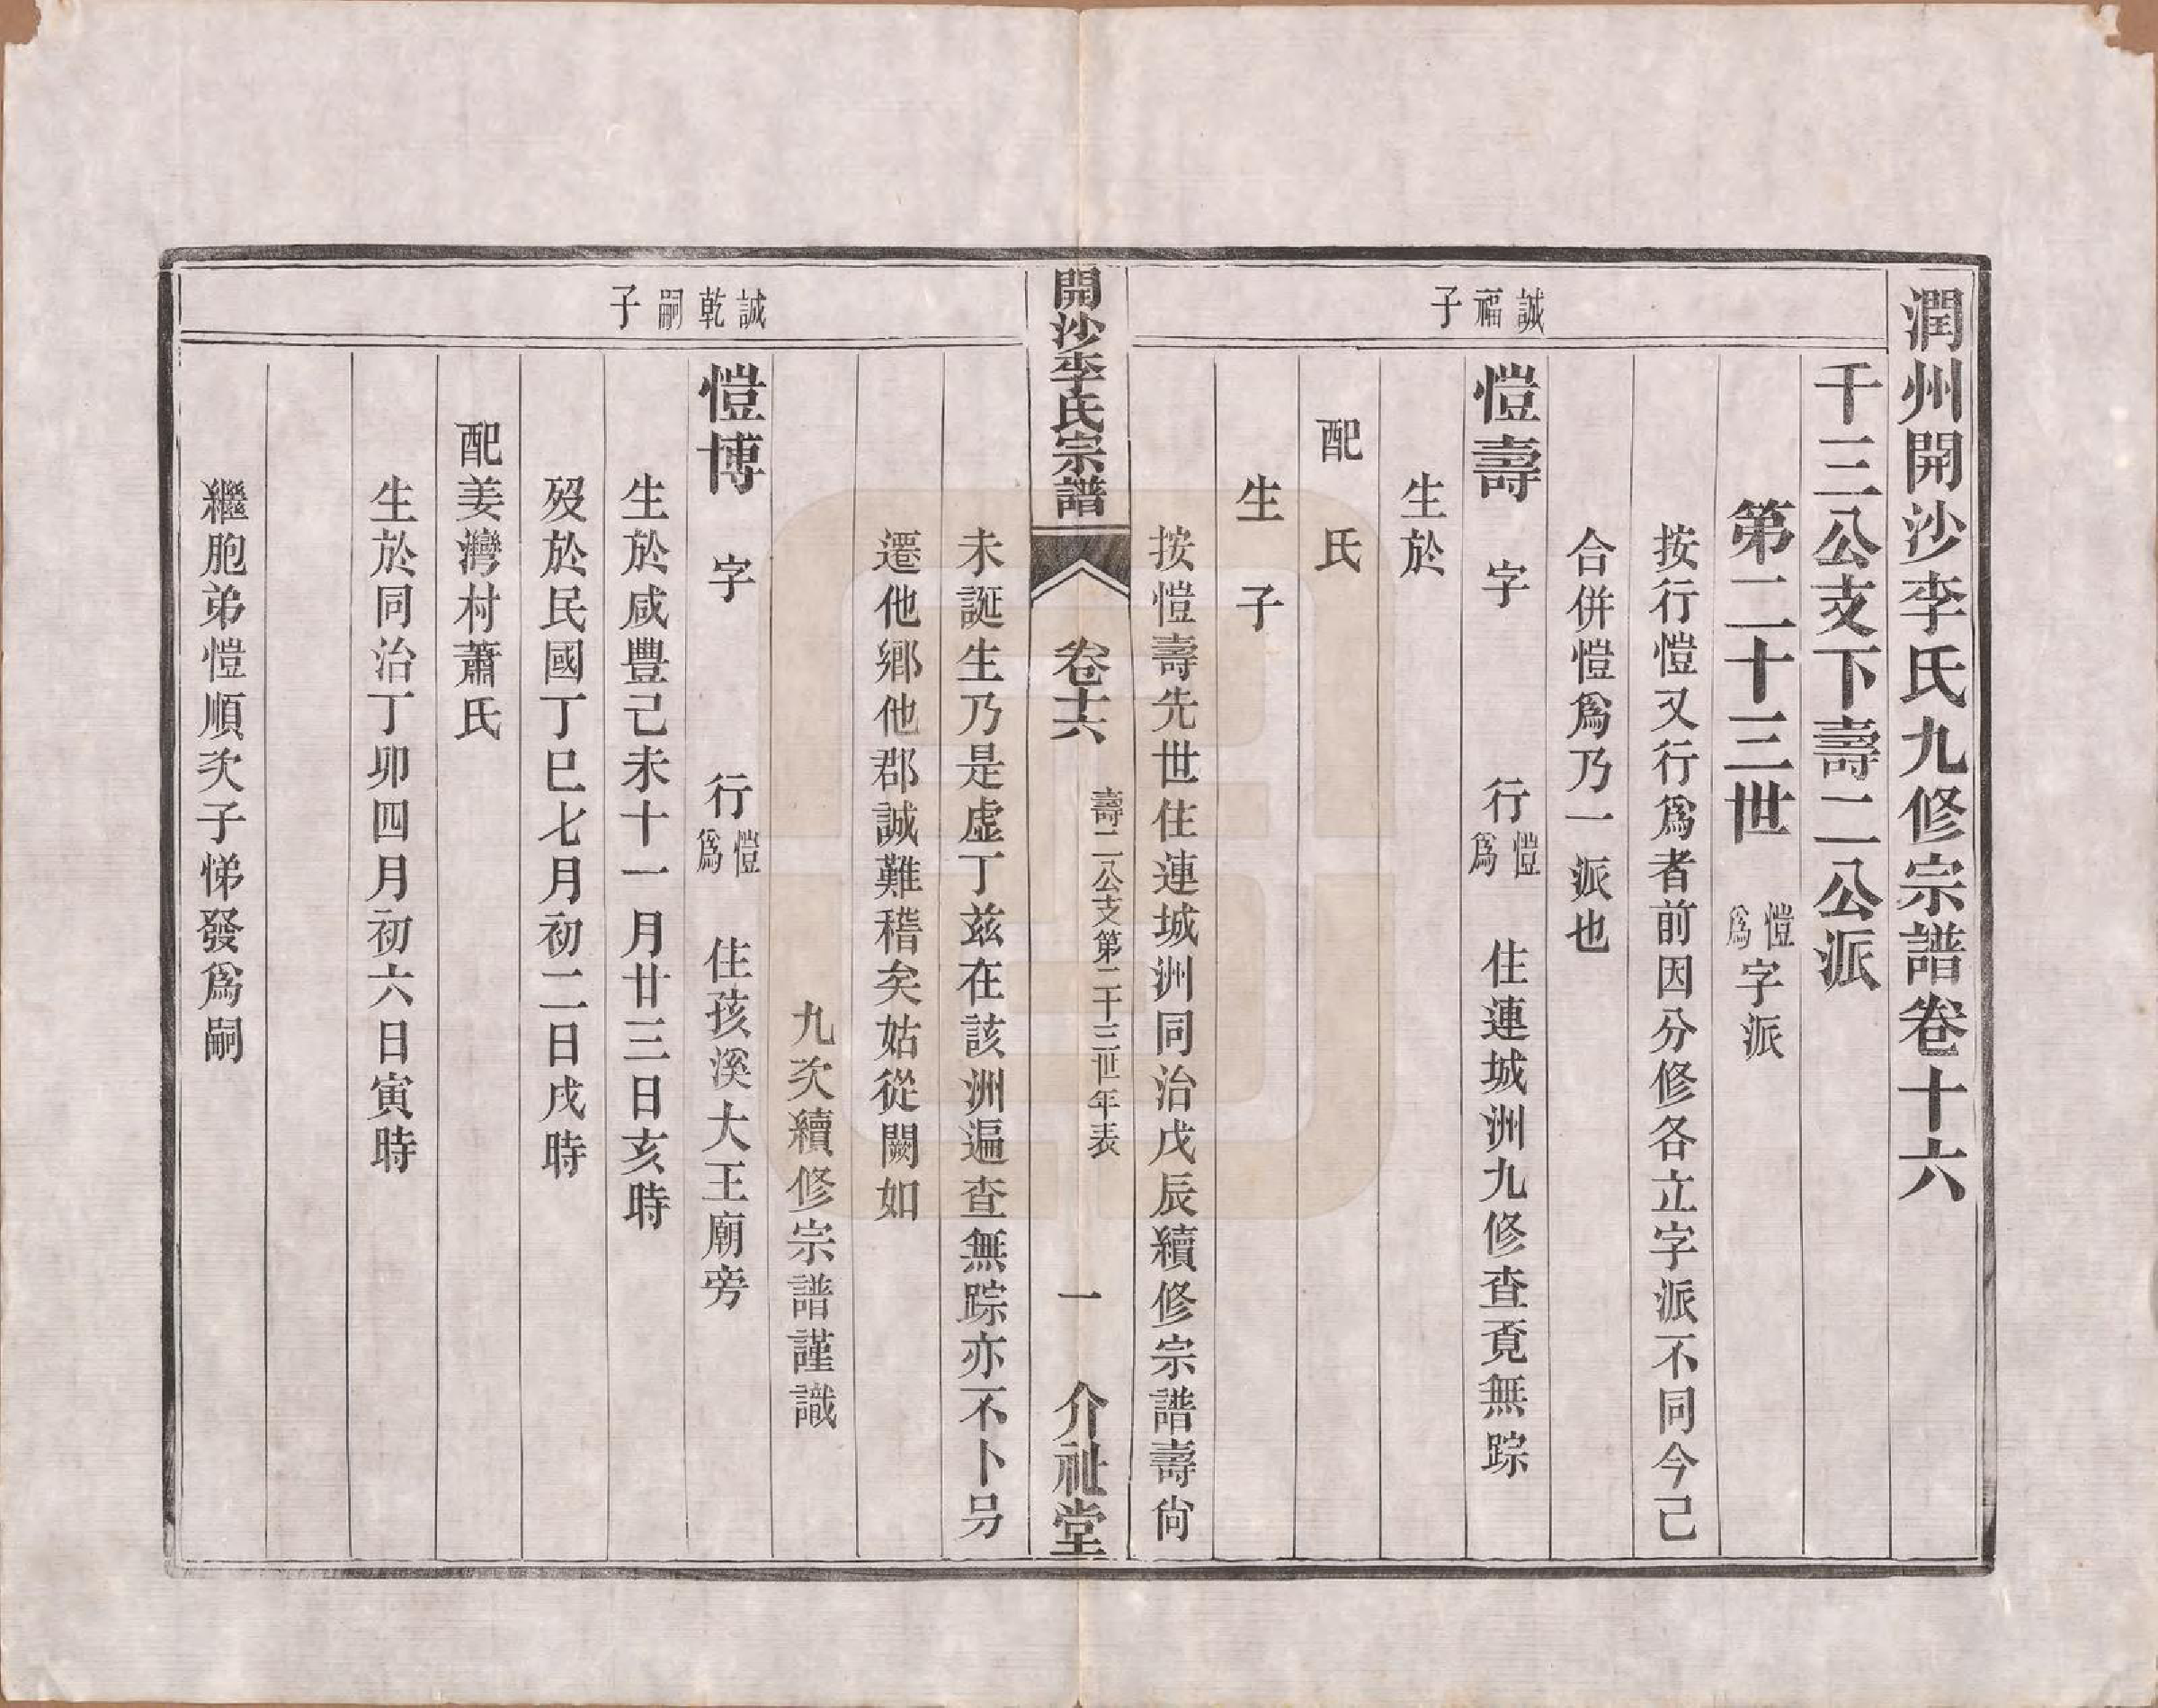 潤州開沙李氏九修宗譜卷十六
千三公支下壽二公派
第二十三世 愷爲字派
按行愷又行爲者前因分修各立字派不同今已
合併愷爲乃一派也
誠福子
愷壽 字 行愷爲 住連城洲九修查覔無踪
生於
配 氏
生 子
按愷壽先世住連城洲同治戊辰續修宗譜壽尙
開沙李氏宗譜 卷十六 壽二公支第二十三世年表 一 介祉堂
未誕生乃是虛丁兹在該洲遍查無踪亦不卜另
遷他鄉他郡誠難稽矣姑從闕如
九次續修宗譜謹識
誠乾嗣子
愷博 字 行愷爲 住孩溪大王廟旁
生於咸豐己未十一月廿三日亥時
歿於民國丁巳七月初二日戌時
配姜灣村蕭氏
生於同治丁卯四月初六日寅時
繼胞弟愷順次子悌發爲嗣